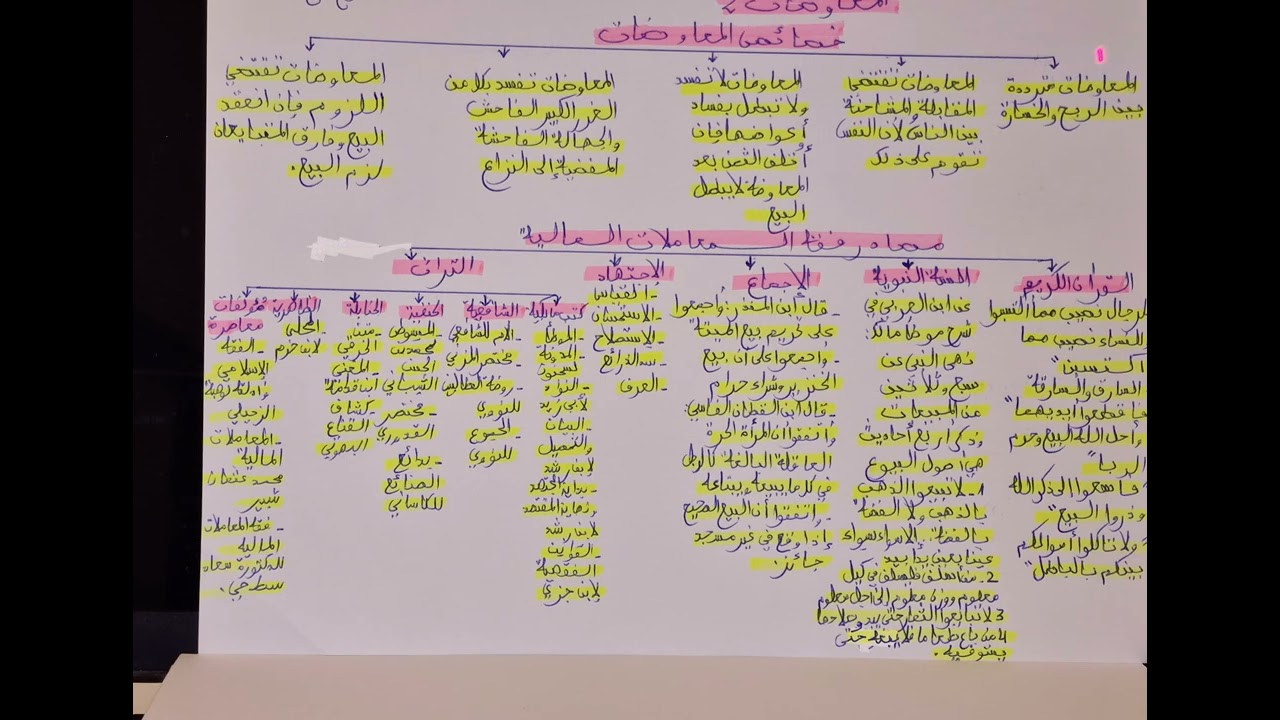 المعاوضات
خصائص المعاوضات
المعاوضات مترددة
بين الربح والخسارة
المعاوضات تقتضي
المقابلة والمشاحنة
بين الناس لأن النفس
تقوم على ذلك
المعاوضات لا تفسد
ولا تبطل بفساد
أعواضها فإن
أخلف الثمن بعد
المعاوضة لا يبطل
البيع
المعاوضات تفسد بكل من
الغرر الكبير الفاحش
والجهالة الفاحشة
المفضية إلى النزاع
المعاوضات تقتضي
اللزوم فإن انعقد
البيع وفارق المتبايعان
لزم البيع.
مصادر فقه المعاملات المالية
القرآن الكريم
للرجال نصيب مما اكتسبوا
وللنساء نصيب مما
اكتسبن"
السارق والسارقة
فاقطعوا أيديهما"
وأحل الله البيع وحرم
الربا"
فاسعوا إلى ذكر الله
وذروا البيع"
"ولا تأكلوا أموالكم
بينكم بالباطل"
السنة النبوية
عن ابن العربي في
شرح موطأ مالك:
نهى النبي عن
سبع وثلاثين
من المبيعات
وذكر أربع أحاديث
هي أصول البيوع
1- لا تبيعوا الذهب
بالذهب ولا الفضة
بالفضة.. إلا سواء بسواء
عينا بعين يدا بيد
2- من أسلف فليسلف في كيل
معلوم ووزن معلوم إلى أجل معلوم
3 لا تبايعوا الثمار حتى يبدو صلاحها
4 من باع طعاما فلا يبعه حتى
يستوفيه.
الإجماع
- قال ابن المنذر: وأجمعوا
على تحريم بيع الميتة
- وأجمعوا على أن بيع
الخنزير وشراءه حرام
- قال ابن القطان الفاسي:
واتفقوا أن المرأة الحرة
العاقلة البالغة كالرجل
في كل ما يبيعه ويبتاعه
- واتفقوا أن البيع الصحيح
إذا وقع في غير مسجد
جائز.
الإجتهاد
- القياس
- الاستحسان
- الاستصلاح
- سد الذرائع
- العرف
التراث
كتب مالكية
- الموطأ
- المدونة
لسحنون
- النوادر
لأبي زيد
- البيان
والتحصيل
لابن رشد
- بداية المجتهد
ونهاية المقتصد
لابن رشد
- القوانين
الفقهية
لابن جزي
الشافعية
- الأم للشافعي
- مختصر المزني
- روضة الطالبين
للنووي
- المجموع
للنووي
الحنفية
- المبسوط
لمحمد بن
الحسن
الشيباني
- مختصر
القدوري
- بدائع
الصنائع
للكاساني
الحنابلة
- متن
الخرقي
- المغني
ابن قدامة
- كشاف
القناع
البهوتي
الظاهرية
- المحلى
لابن حزم
مؤلفات
معاصرة
- الفقه
الإسلامي
وأدلته لوهبة
الزحيلي
- المعاملات
المالية
محمد عثمان
شبير
- فقه المعاملات
المالية
للدكتورة سعاد
سطحي.